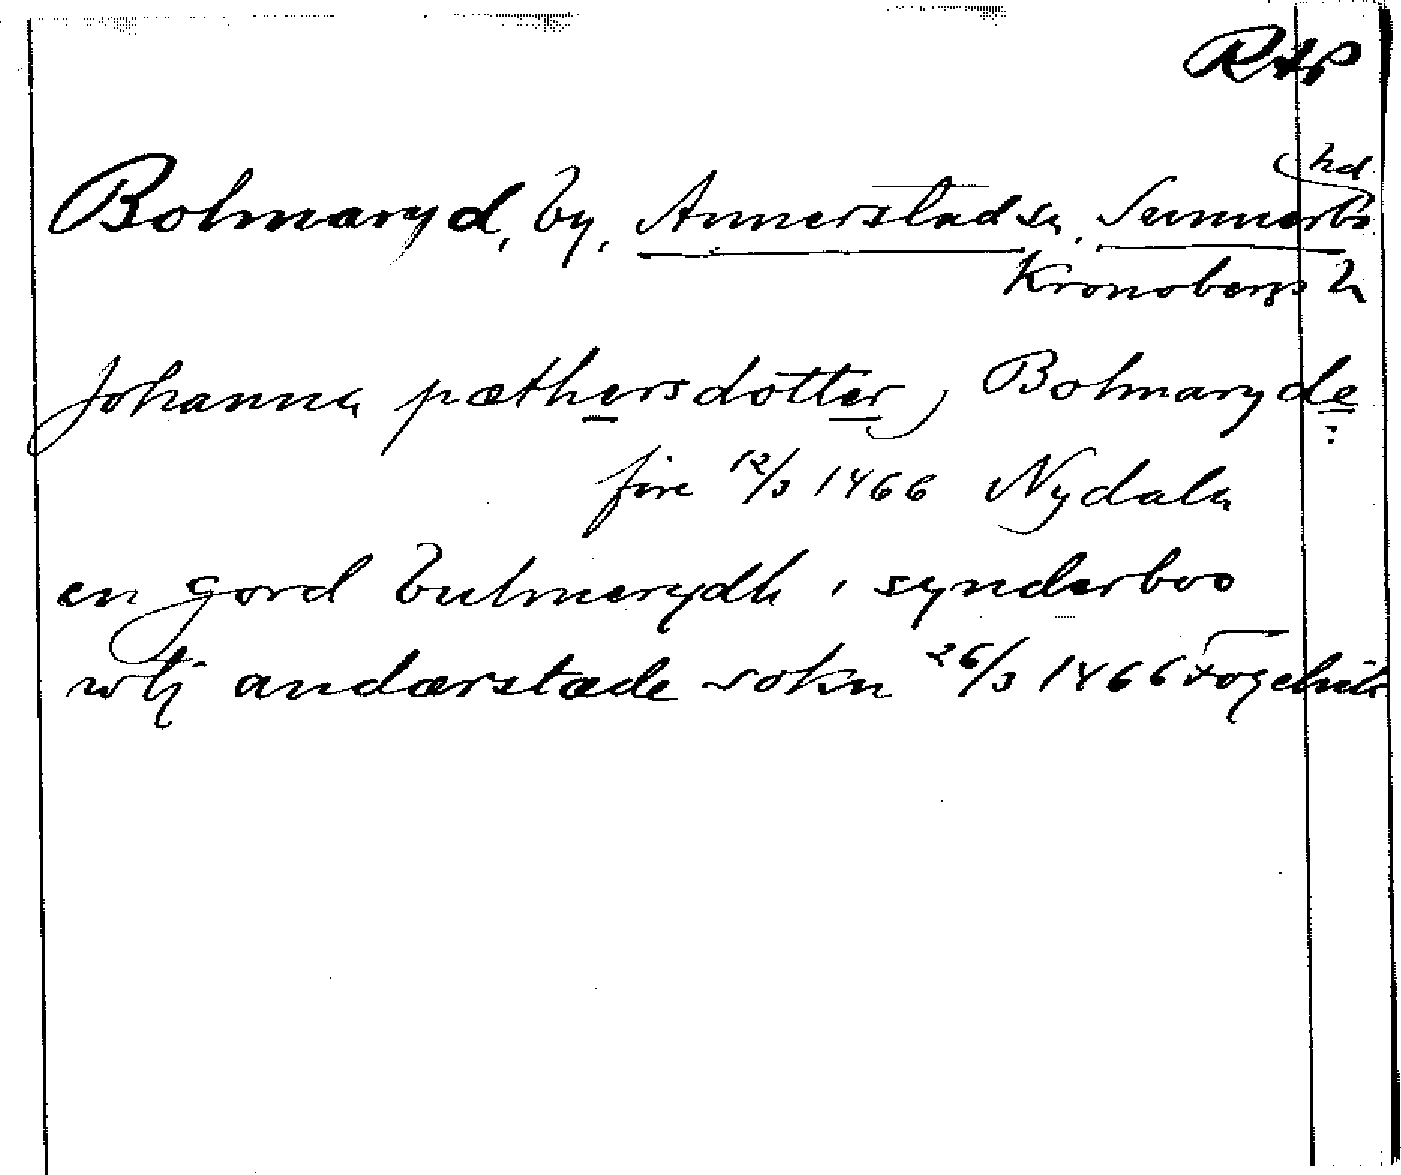 RAP
Bolmaryd, by, Annerstad sn, Sunnerbo hd
Kronobergs l
Johanna pæthersdotter, Bolmaryde
före 12/3 1466 Nydala
en gord bulmerydh i synderboo
wtj andærstæde sokn 26/3 1466 Fogelvik